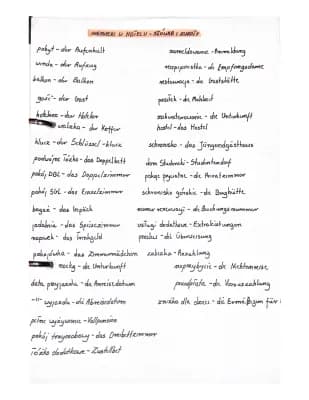 NOCLEGI W HOTELU - SŁÓWKA I ZWROTY
pobyt - der Aufenthalt
winda - der Aufzug
balkon - der Balkon
gość - der Gast
kelner - der Kellner
walizka - der Koffer
klucz - der Schlüssel
podwójne łóżko - das Doppelbett
pokój DBL - das Doppelzimmer
pokój SGL - das Einzelzimmer
bagaż - das Gepäck
jadalnia - das Speisezimmer
napiwek - das Trinkgeld
pokojówka - das Zimmermädchen
nocleg - die Unterkunft
data przyjazdu - das Anreisedatum
-"- wyjazdu - die Abreisedatum
pełne wyżywienie - Vollpension
pokój trzyosobowy - das Dreibettzimmer
łóżko dodatkowe - Zustellbett
zameldowanie - Anmeldung
recepcjonistka - die Empfangsdame
restauracja - die Gaststätte
posiłek - die Mahlzeit
zakwaterowanie - die Unterkunft
hostel - das Hostel
schronisko - das Jungendgästhaus
dom studencki - Studentendorf
pokoje prywatne - die Privatzimmer
schronisko górskie - die Berghütte
numer rezerwacji - die Buchungsnummer
usługi dodatkowe - Extraleistungen
przelew - die Überweisung
zaliczka - Anzahlung
nieprzybycie - die Nichtanreise
przedpłata - die Vorauszahlung
zniżka dla dzieci - die Ermäßigung für